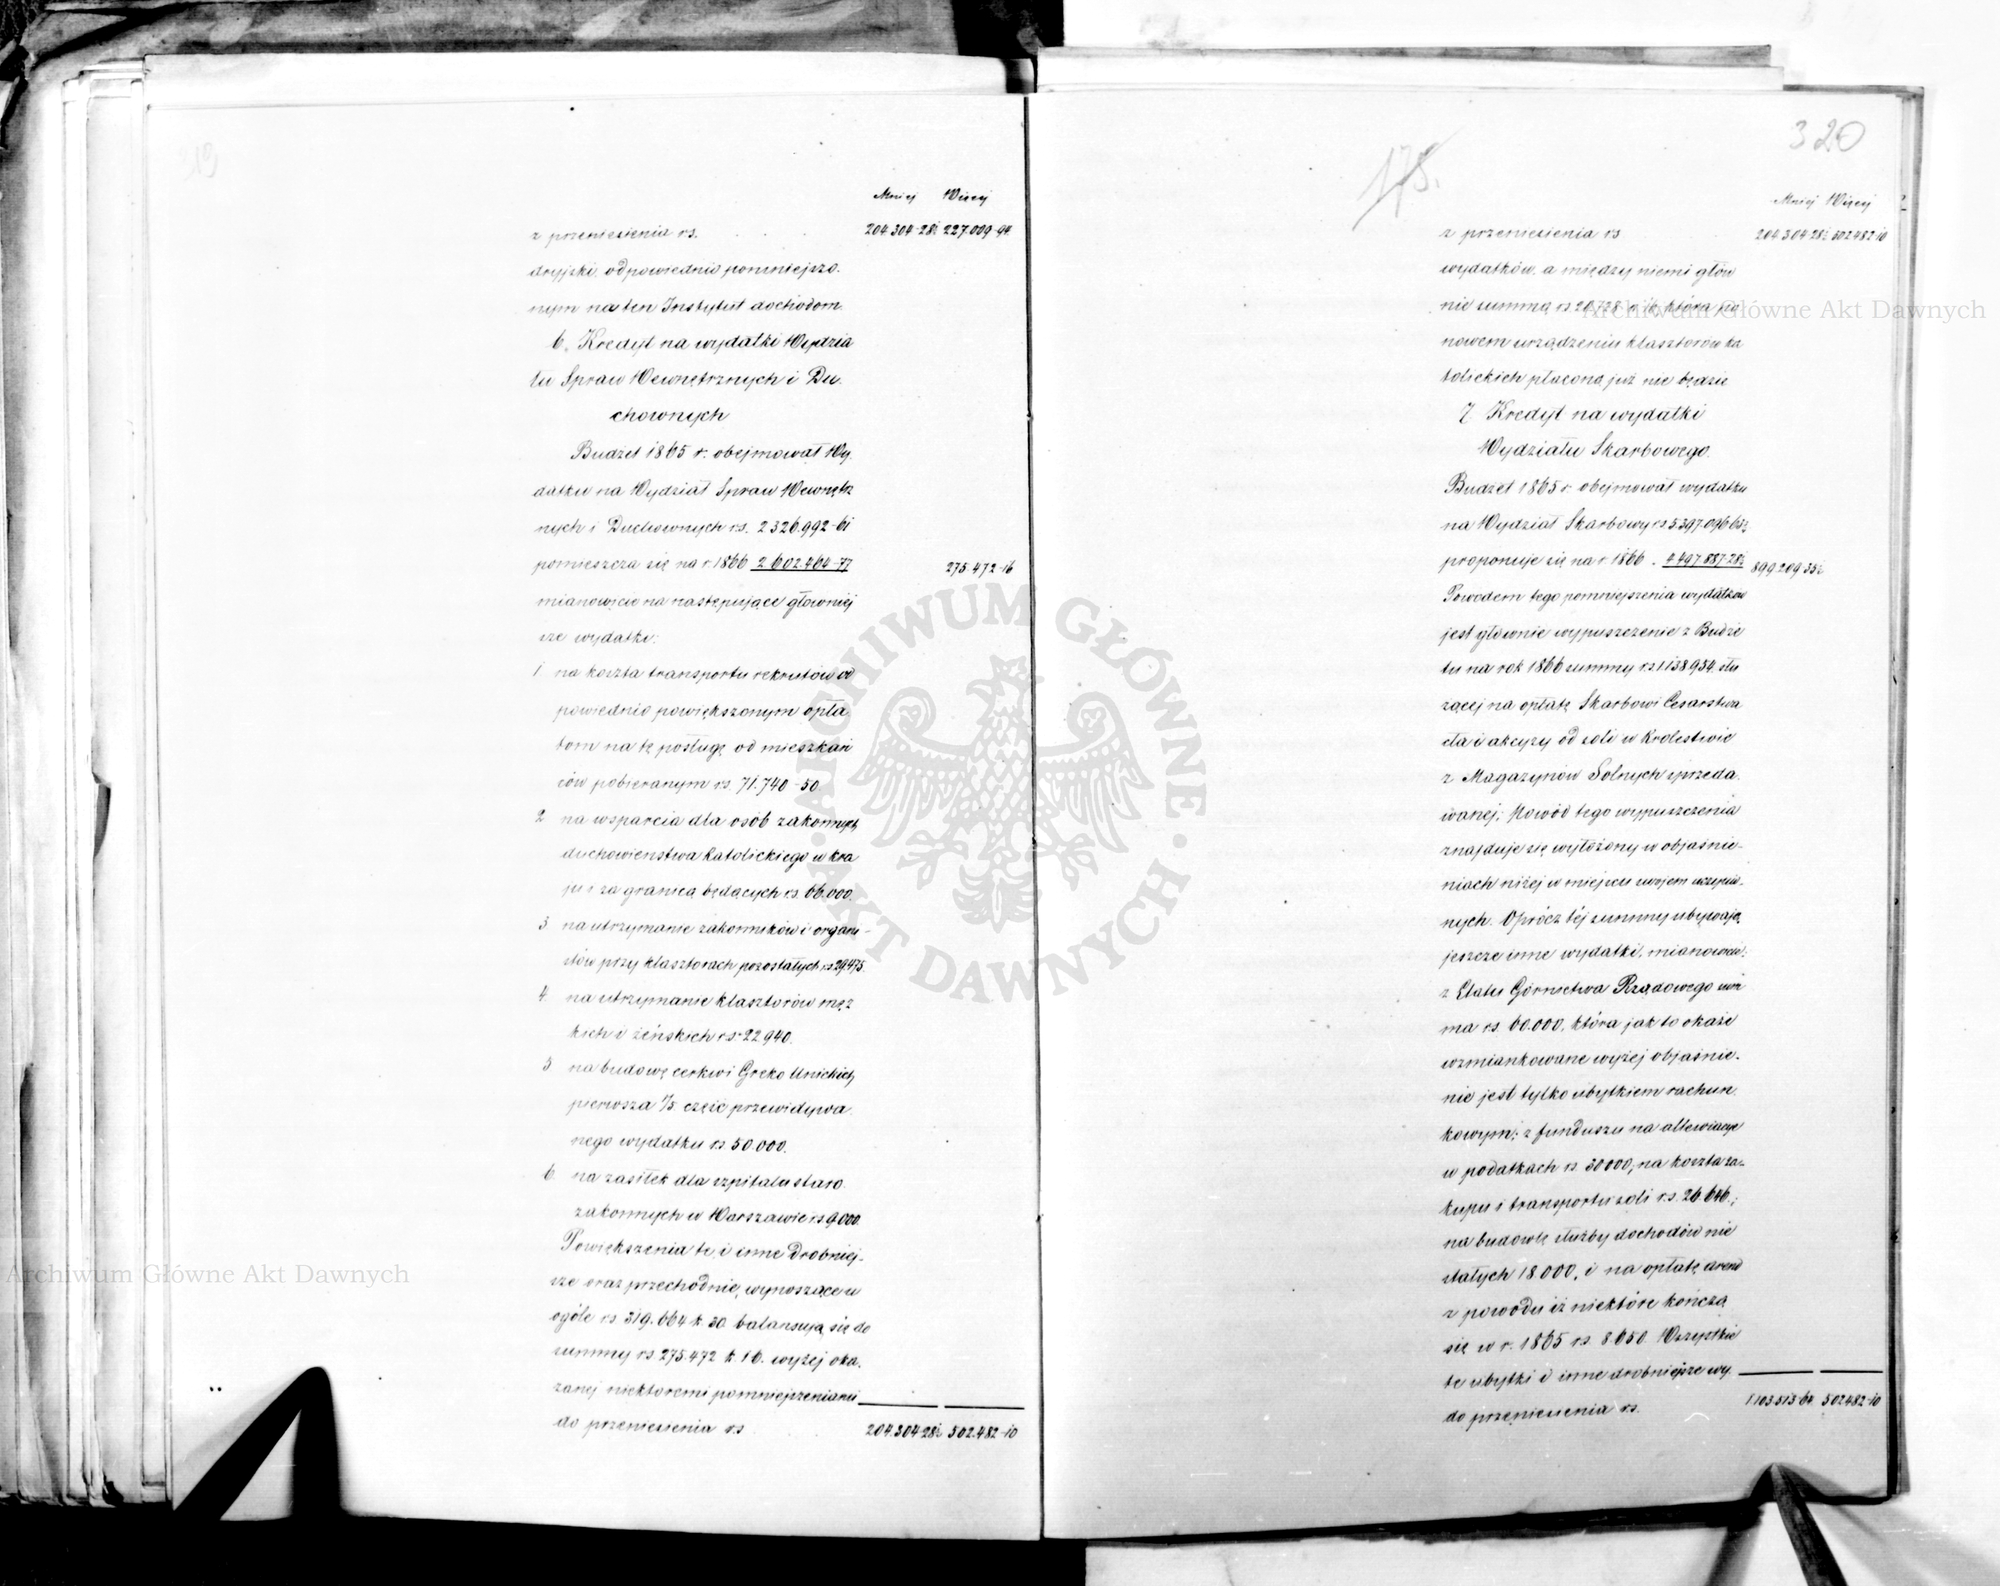 Mniej Więcej
z przeniesienia rs. 204.304-28½ 227.009-94
dryjski, odpowiednio pomniejszo-
nym na ten Instytut dochodom.
6. Kredyt na wydatki Wydzia
łu Spraw Wewnętrznych i Du-
chownych
Budżet 1865 r. obejmował Wy-
datku na Wydział Spraw Wewnętrz
nych i Duchownych rs. 2.326.992-61
pomieszcza się na r. 1866 2.602.464-77 275.472-16
mianowicie na następujące główniej
sze wydatki:
1 na koszta transportu rekrutów od
powiednio powiększonym opła
tom na tę posługę od mieszkań
ców pobieranym rs. 71.740-50
2 na wsparcia dla osób zakonnych
duchowieństwa katolickiego w kra
ju i za granicą będących rs. 66.000.
3 na utrzymanie zakonników i organi-
stów przy klasztorach pozostałych rs 29.475.
4. na utrzymanie klasztorów męz
kich i żeńskich rs. 22.940.
5 na budowę cerkwi Greko Unickich
pierwsza 1/5 część przewidywa
nego wydatku rs 50.000.
6 na zasiłek dla szpitalu staro
zakonnych w Warszawie rs 9.000.
Powiększenia te i inne drobniej-
sze oraz przechodnie, wynoszące w
ogóle rs 319.664 k. 30 balansują się do
summy rs. 275.472 k. 16. wyżej oka-
zanej niektoremi pomniejszeniami
do przeniesienia rs 204.304-28½ 502.482-10
175.
320
Mniej Więcej
z przeniesienia rs 204.304-28½ 502.482-10
wydatków, a między niemi głów
nie summą rs. która po
nowem urządzeniu klasztorów ka
tolickich płaconą już nie będzie
7. Kredyt na wydatki
Wydziału Skarbowego.
Budżet 1865 r. obejmował wydatku
na Wydział Skarbowy rs 5.397.096-63½
proponuje się na r. 1866 . 4.497.887-28½ 899.209-35½
Powodem tego pomniejszenia wydatków
jest głównie wypuszczenie z Budże
tu na rok 1866 summy rs. 1.138.954 słu
żącej na opłatę Skarbowi Cesarstwa
cła i akcyzy od soli w Królestwie
z Magazynów Solnych sprzeda-
wanej; Powód tego wypuszczenia
znajduje się wyłożony w objaśnie-
niach niżej w miejscu swojem uczynio-
nych. Oprócz téj summy ubywają
jeszcze inne wydatki, mianowicie:
z Etatu Górnictwa Rządowego sum
ma rs. 60.000, która jak to okaże
wzmiankowane wyżej objaśnie-
nie jest tylko ubytkiem rachun-
kowym; z funduszu na allewiacye
w podatkach rs. 30000; na koszta za-
kupu i transportu soli rs. 26.646.;
na budowlę służby dochodów nie
stałych 18.000, i na opłatę arend
z powodu iż niektóre kończą
się w r. 1865 rs. 8650. Wszystkie
te ubytki i inne drobniejsze wy-
do przeniesienia rs. 1.103.513-64. 502.482-10
ARCHIWUM GŁÓWNE · AKT DAWNYCH ·
Archiwum Główne Akt Dawnych
Archiwum Główne Akt Dawnych